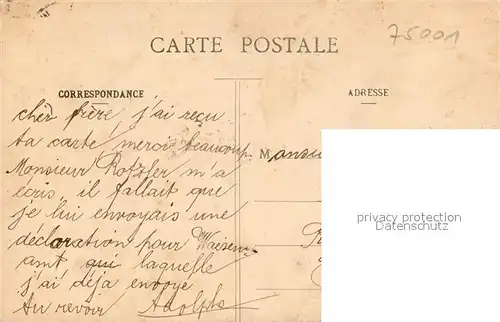 75001
CARTE POSTALE
CORRESPONDANCE
ADRESSE
chèr frère, j'ai reçu
ta carte, merci beaucoup.
Monsieur Rotzler m'a
écris, il fallait que
je lui envoyais une
déclaration pour Waisen
amt qui laquelle
j'ai déja envoyé
Au revoir Adolphe
M
privacy protection
Datenschutz